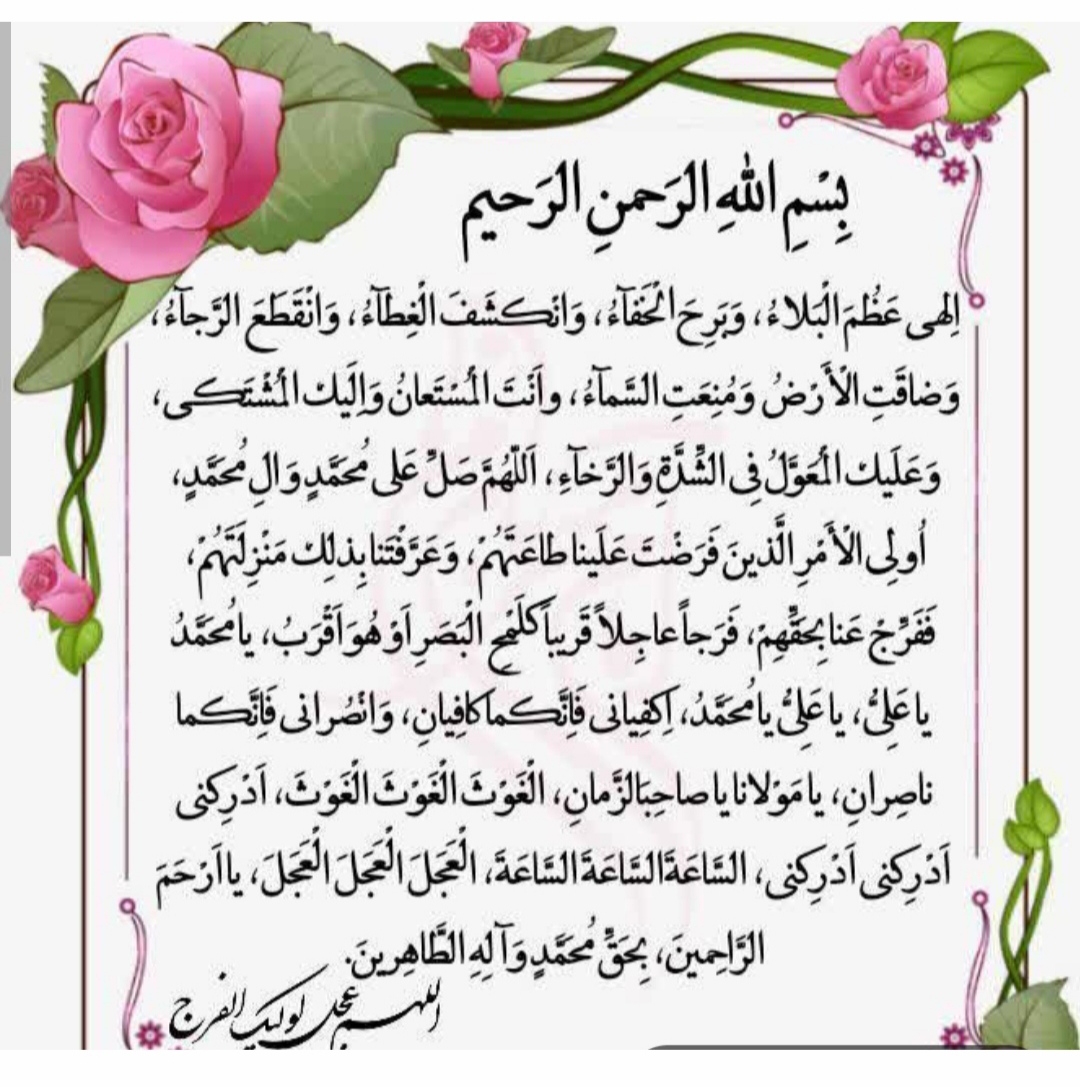 بِسْمِ اللهِ الرَحمنِ الرَحیم
اِلهی عَظُمَ الْبَلاءُ، وَبَرِحَ الْخَفآءُ، وَانْکَشَفَ الْغِطآءُ، وَانْقَطَعَ الرَّجآءُ،
وَضاقَتِ الْأَرْضُ وَمُنِعَتِ السَّمآءُ، واَنْتَ الْمُسْتَعانُ وَاِلَیك الْمُشْتَکی،
وَعَلَیك الْمُعَوَّلُ فِی الشِّدَّةِ وَالرَّخآءِ، اَللّهُمَّ صَلِّ عَلی مُحَمَّدٍ وَالِ مُحَمَّدٍ،
اُولِی الْأَمْرِ الَّذینَ فَرَضْتَ عَلَینا طاعَتَهُمْ، وَعَرَّفْتَنا بِذلِك مَنْزِلَتَهُمْ،
فَفَرِّجْ عَنا بِحَقِّهِمْ، فَرَجاً عاجِلاً قَریباً کَلَمْحِ الْبَصَرِ اَوْ هُوَ اَقْرَبُ، یا مُحَمَّدُ
یا عَلِیُّ، یا عَلِیُّ یا مُحَمَّدُ، اِکْفِیانی فَاِنَّکُما کافِیانِ، وَانْصُرانی فَاِنَّکُما
ناصِرانِ، یا مَوْلانا یا صاحِبَ الزَّمانِ، الْغَوْثَ الْغَوْثَ الْغَوْثَ، اَدْرِکْنی
اَدْرِکْنی اَدْرِکْنی، السَّاعَةَ السَّاعَةَ السَّاعَةَ، الْعَجَلَ الْعَجَلَ الْعَجَلَ، یا اَرْحَمَ
الرَّاحِمینَ، بِحَقِّ مُحَمَّدٍ وَآلِهِ الطَّاهِرینَ.
اللهم عجل لولیک الفرج